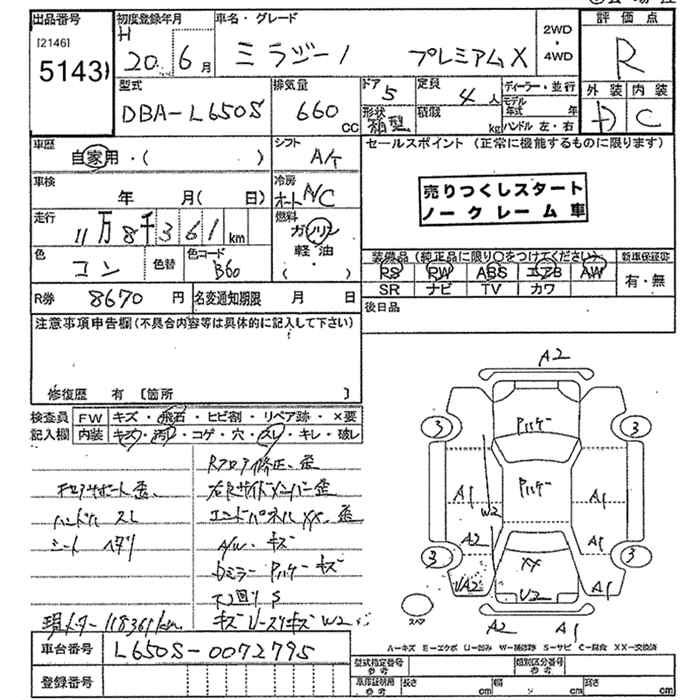 出品番号
[2146]
5143
初度登録年月
H 20年 6月
車名・グレード
ミラジーノ プレミアムX
2WD
・
4WD
評価点
R
型式
DBA-L650S
排気量
660 CC
ドア 5
形状 箱型
定員 4人
積載 kg
ディーラー・並行
モデル年式 年
ハンドル 左・右
外装 内装
D C
車歴
自家用・( )
シフト
A/T
セールスポイント (正常に機能するものに限ります)
売りつくしスタート
ノークレーム車
車検
年 月( 日)
冷房
オートA/C
走行
11万8千361km
燃料
ガソリン
軽油
・( )
色
コン
色替
色コード
B60
装備品 (純正品に限り○をつけてください)
新車保証書
RS RW ABS エアB AW
SR ナビ TV カワ
有・無
R券 8670円
名変通知期限 月 日
後日品
注意事項申告欄(不具合内容等は具体的に記入して下さい)
修復歴 有 [箇所 ]
検査員 FW キズ・飛石・ヒビ割・リペア跡・×要
記入欄 内装 キズ・汚れ・コゲ・穴・スレ・キレ・破レ
Rフロア修正、歪
右Rサイドメンバー歪
ハンドル スレ
エンドパネルXX、歪
シート ヘタリ
A/W キズ
Dミラー Pハゲ キズ
下回りS
現メーター118361km
車台番号 L650S-0072795
登録番号
A2
3 3
Pハゲ
Pハゲ
A1 W2 A1
A2 A1
3 3
XX
UA2 U2 A1
スペア
A2 A1
A-キズ E-エクボ U-凹み W-補修跡 S-サビ C-腐食 XX-交換済
型式指定番号 参考
類別区分番号 参考
車庫証明用 参考
長さ cm
幅 cm
高さ cm